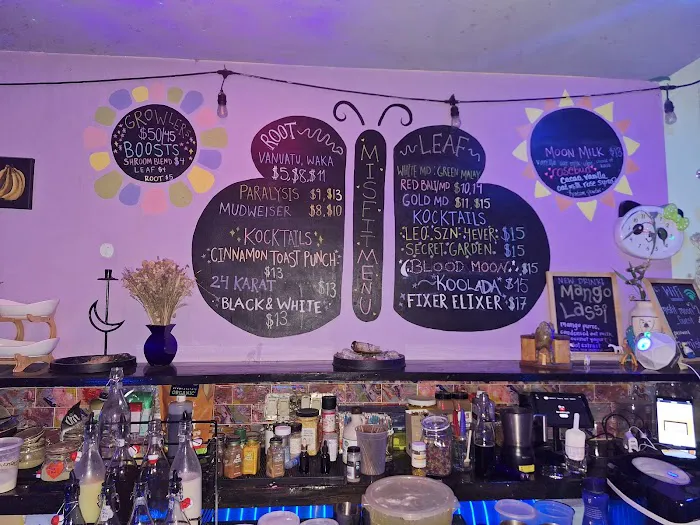 GROWLERS
$50/45
BOOSTS
SHROOM BLEND $4
LEAF $4
ROOT $5
ROOT
VANUATU, WAKA
$5,$8,$11
PARALYSIS $9, $13
MUDWEISER $8, $10
KOCKTAILS
CINNAMON TOAST PUNCH
$13
24 KARAT $13
BLACK & WHITE
$13
MISFIT MENU
LEAF
WHITE MD : GREEN MALAY
RED BALI/MD $10,14
GOLD MD $11, $15
KOCKTAILS
LEO SZN 4EVER $15
SECRET GARDEN $15
BLOOD MOON $15
KOOLADA $15
FIXER ELIXER $17
MOON MILK
rosebud
cacao, vanilla
oat milk, rose syrup
NEW DRINK!
Mango
Lassi
mango puree,
condensed oat milk
ORGANIC